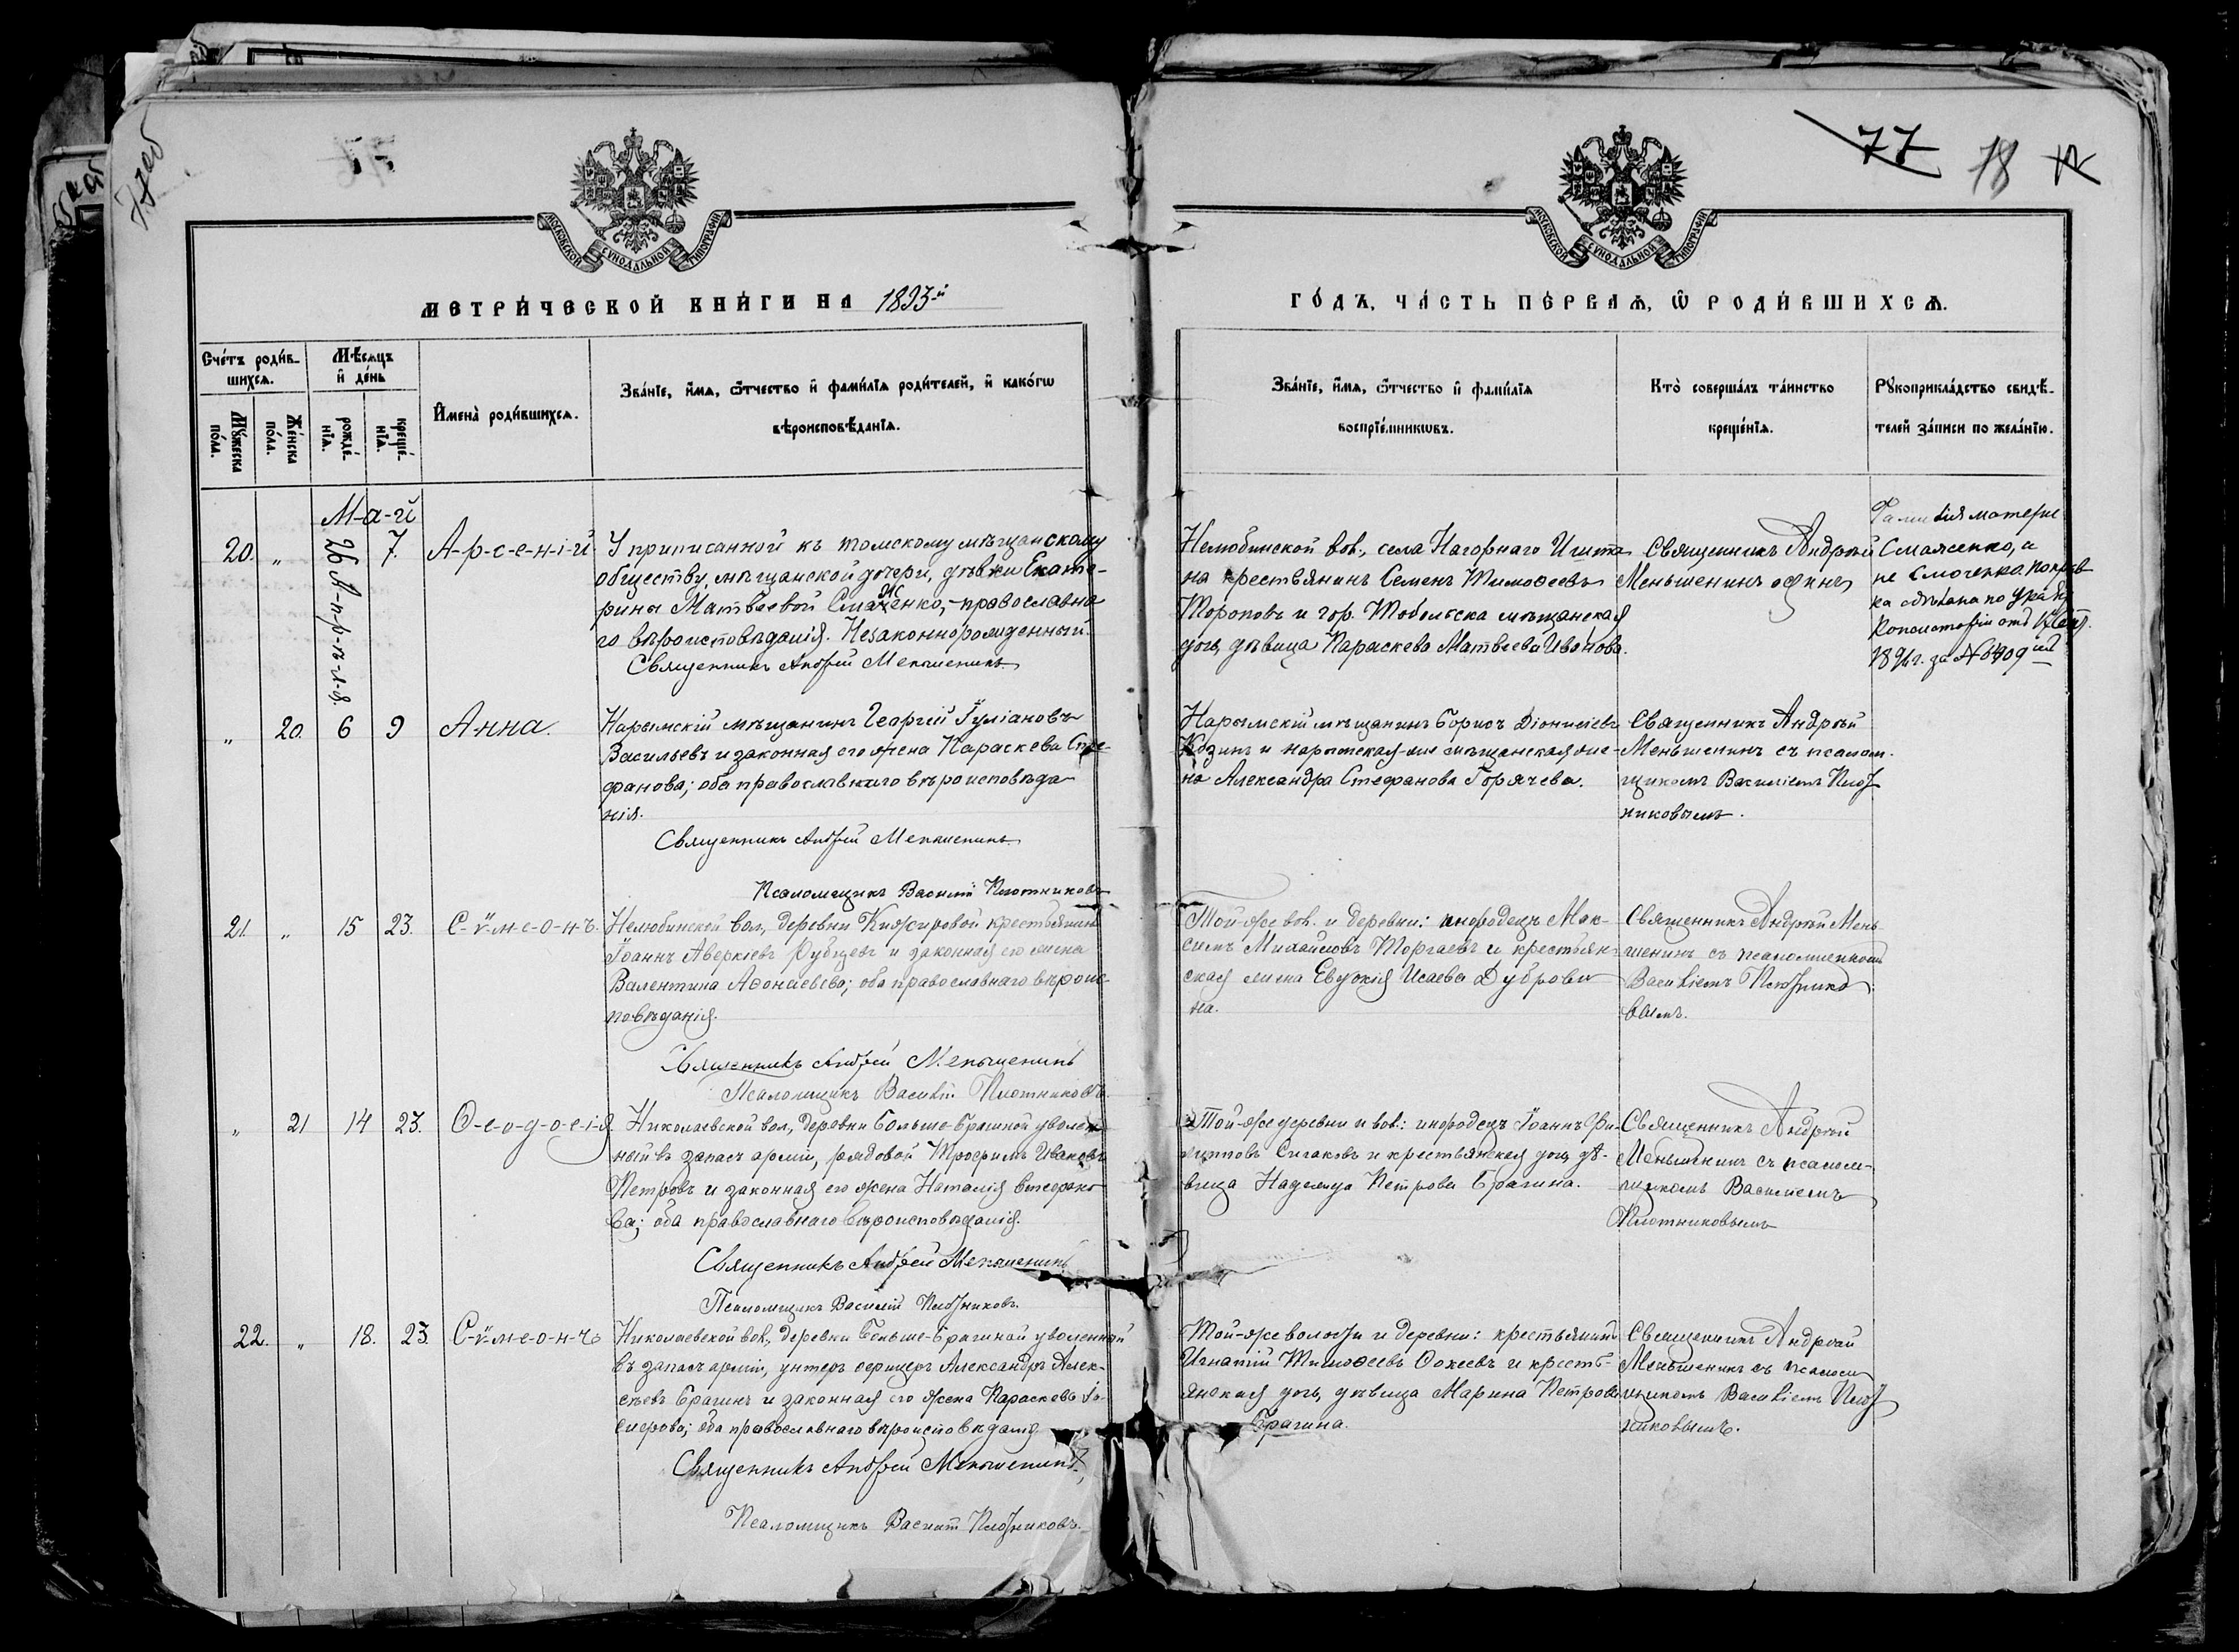 77 78
МОСКОВСКОЙ СѴНОДАЛЬНОЙ ТИПОГРАФІИ
МОСКОВСКОЙ СѴНОДАЛЬНОЙ ТИПОГРАФІИ
МЕТРИ́ЧЕСКОЙ КНИ́ГИ НА 1893-й
ГО́ДЪ, ЧА́СТЬ ПЕ́РВАѦ, Ѿ РОДИ́ВШИХСѦ.
Сче́тъ роди́в-
шихсѧ.
Мꙋ́жеска по́ла.
Же́нска по́ла.
Мѣ́сѧцъ
и҆ де́нь
рожде́-
нїѧ.
креще́-
нїѧ.
И҆мена̀ роди́вшихсѧ.
Зва́нїе, и҆́мѧ, ѻ҆́тчество и҆ фами́лїѧ роди́телей, и҆ како́гѡ
вѣроисповѣ́данїѧ.
Зва́нїе, и҆́мѧ, ѻ҆́тчество и҆ фами́лїѧ
воспрїе́мникѡвъ.
Кто̀ соверша́лъ та́инство
креще́нїѧ.
Рꙋкоприкла́дство свидѣ́-
телей за́писи по жела́нїю.
М-а-й
20. „ 26 А-п-р-ѣ-л-я. 7. А-р-с-е-н-і-й
У приписанной къ томскому мѣщанскому
обществу, мѣщанской дочери, дѣвки Екате-
рины Матвѣевой Смаженко,- православна
го вѣроисповѣданія. Незаконнорожденный.
Священникъ Андрей Меньшенинъ
Нелюбинской вол., села Нагорнаго Иштана
крестьянинъ Семенъ Тимоѳеевъ
Тороповъ и гор. Тобольска мѣщанская
дочь, дѣвица Параскева Матвеева Иванова.
Священникъ Андрей
Меньшенинъ одинъ
Фамилія матери
Смаженко, а
не Смаченко. Поправ
ка сдѣлана по указу
Консисторіи отъ
189 г. за №
„ 20. 6 9 Анна.
Нарымскій мѣщанинъ Георгій Іуліановъ
Васильевъ и законная его жена Параскева Сте-
фанова; оба православнаго вѣроисповѣда
нія.
Священникъ Андрей Меньшенинъ
Псаломщикъ Василій Плотниковъ
Нарымскій мѣщанинъ Борисъ Діонисіевъ
Козинъ и нарымская-же мѣщанская же-
на Александра Стефанова Горячева.
Священникъ Андрей
Меньшенинъ съ псалом-
щикомъ Василіемъ Плот
никовымъ.
21. „ 15 23. С-ѵ-м-е-о-н-ъ.
Нелюбинской вол., деревни Кижировой крестьянинъ
Іоаннъ Аверкіевъ Рубцевъ и законная его жена
Валентина Аѳонасьева; оба православнаго вѣроис-
повѣданія.
Священникъ Андрей Меньшенинъ
Псаломщикъ Василій Плотниковъ.
Той-же вол. и деревни: инородецъ Мак-
симъ Михайловъ Торгаевъ и крестьян-
ская жена Евдокія Исаева Дуброви
на.
Священникъ Андрей Мень-
шенинъ съ псаломщикомъ
Василіемъ Плотнико
вымъ.
„ 21 14 23. Ѳ-е-о-д-о-с-і-я.
Николаевской вол., деревни Больше-Брагиной уволен
ный въ запасъ арміи, рядовой Трофимъ Ивановъ
Петровъ и законная его жена Наталія Стефано-
ва; оба православнаго вѣроисповѣданія.
Священникъ Андрей Меньшенинъ
Псаломщикъ Василій Плотниковъ.
Той-же деревни и вол.: инородецъ Іоаннъ Фи-
липповъ Сигаковъ и крестьянская дочь, дѣ-
вица Надежда Петрова Брагина.
Священникъ Андрей
Меньшенинъ съ псалом-
щикомъ Василіемъ
Плотниковымъ
22. „ 18. 23. С-ѵ-м-е-о-н-ъ
Николаевской вол., деревни Больше-Брагиной уволенный
въ запасъ арміи, унтеръ офицеръ Александръ Алек-
сѣевъ Брагинъ и законная его жена Параскева Іо-
сифова; оба православнаго вѣроисповѣданія
Священникъ Андрей Меньшенинъ
Псаломщикъ Василій Плотниковъ.
Той-же волости и деревни: крестьянинъ
Игнатій Тимоѳеевъ Фокеевъ и кресть-
янская дочь, дѣвица Марина Петрова
Брагина.
Священникъ Андрей
Меньшенинъ съ псалом
щикомъ Василіемъ Плот
никовымъ.